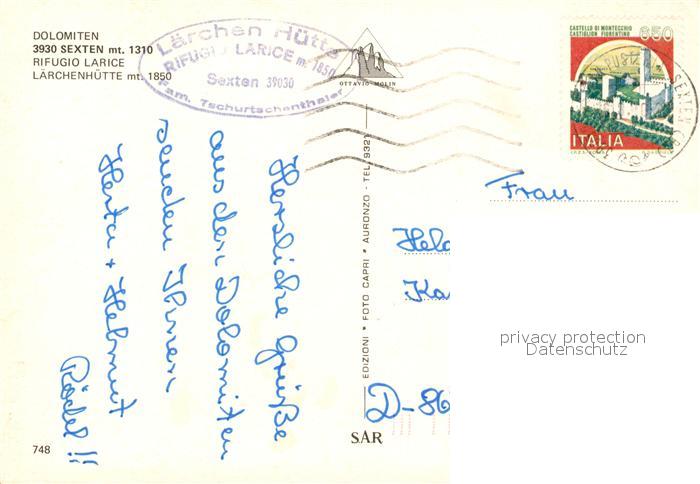 DOLOMITEN
3930 SEXTEN mt. 1310
RIFUGIO LARICE
LÄRCHENHÜTTE mt. 1850
Lärchen Hütte
RIFUGIO LARICE m. 1850
Sexten 39030
Fam. Tschurtschenthaler
OTTAVIO MOLIN
CASTELLO DI MONTECCHIO
CASTIGLION FIORENTINO
650
ITALIA
SEXTEN
Herzliche Grüße
aus den Dolomiten
senden Ihnen
Herta + Helmut
Rödel !!
EDIZIONI * FOTO CAPRI * AURONZO - TEL. 9321
Frau
Hel
Ka
D-86
privacy protection
Datenschutz
748
SAR